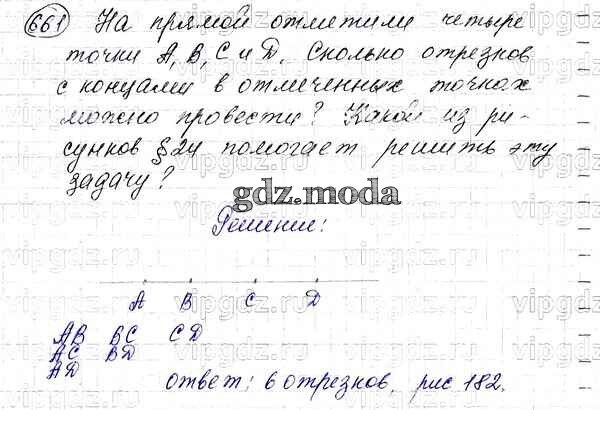 661 На прямой отметили четыре
точки A, B, C и D. Сколько отрезков
с концами в отмеченных точках
можно провести? Какой из ри-
сунков § 24 помогает решить эту
задачу?
gdz.moda
Решение:
A B C D
AB BC CD
AC BD
AD
ответ: 6 отрезков, рис 182.